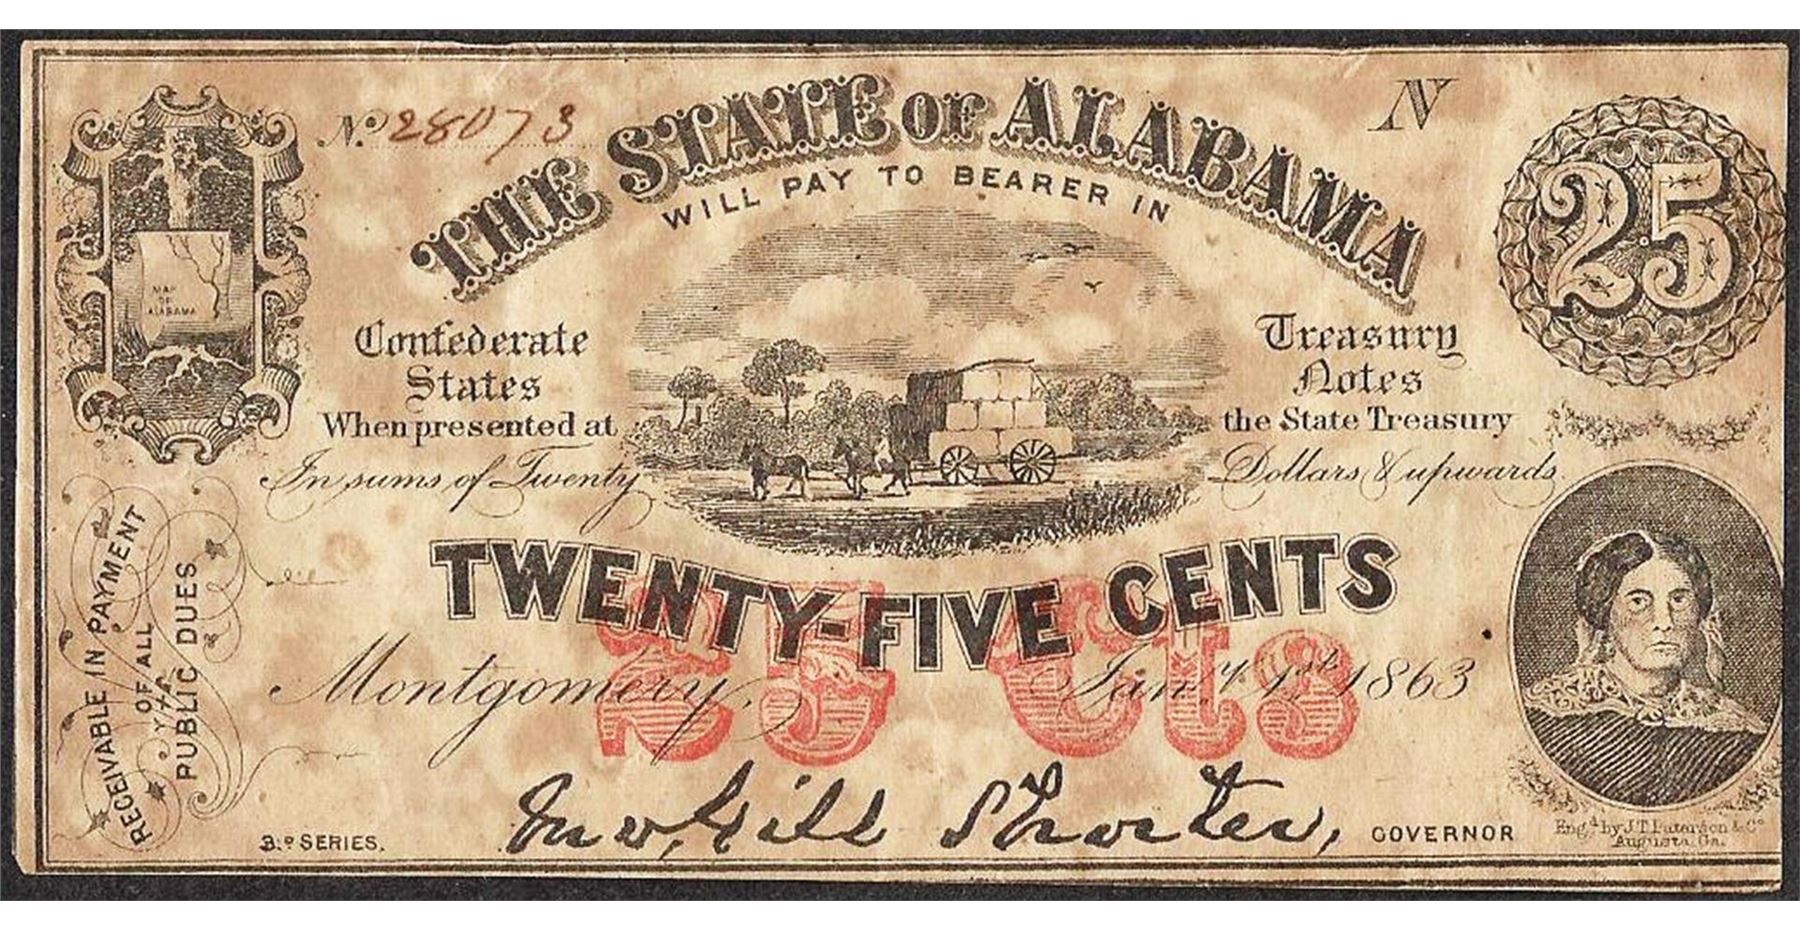 No. 28073
N
THE STATE OF ALABAMA
WILL PAY TO BEARER IN
25
MAP
OF
ALABAMA
Confederate
States
When presented at
In sums of Twenty
Treasury
Notes
the State Treasury
Dollars & upwards
TWENTY-FIVE CENTS
25 Cts
Montgomery, Jany 1st 1863
RECEIVABLE IN PAYMENT
OF ALL
PUBLIC DUES
3.D SERIES.
Jno, Gill Shorter, GOVERNOR
Eng.d by J.T. Paterson & Co
Augusta, Ga.